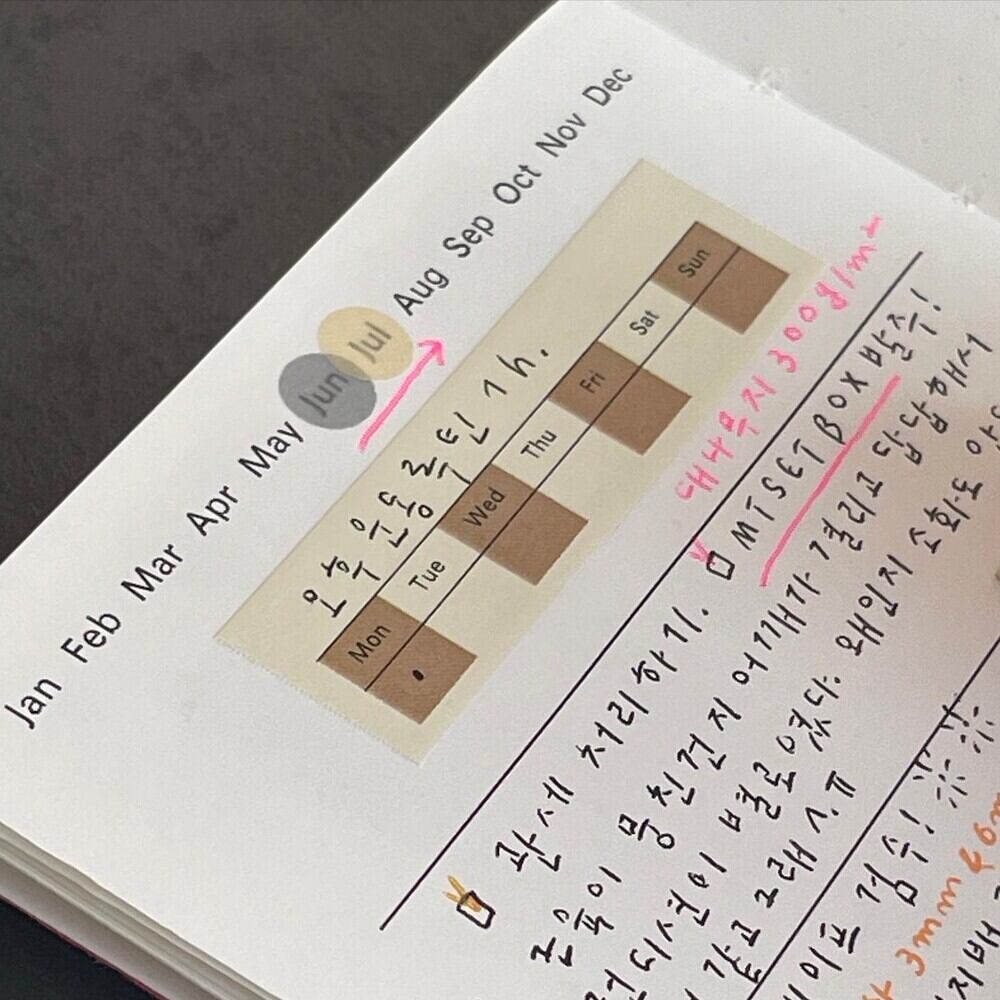 Jan Feb Mar Apr May Jun Jul Aug Sep Oct Nov Dec
오후 운동 루틴 1h.
Mon Tue Wed Thu Fri Sat Sun
대나무지 300g/m²
관세 처리하기. MTSET BOX 발주!
근육이 뭉친건지 어깨가 결리고 답답해서
컨디션이 별로였다. 왜인지 소화도
같고 그래ㅠ
이프 검수!
3mm